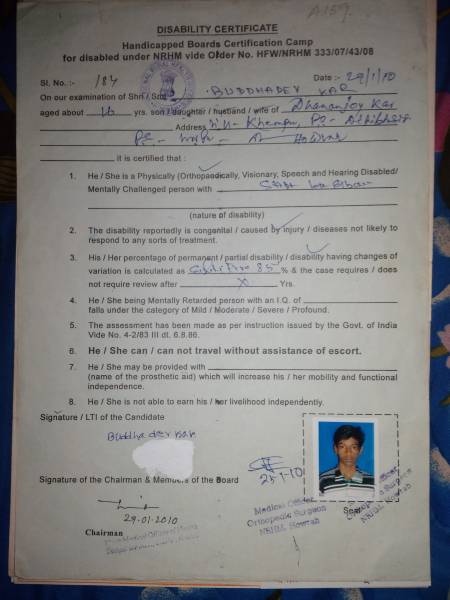 A159
DISABILITY CERTIFICATE
Handicapped Boards Certification Camp
for disabled under NRHM vide Order No. HFW/NRHM 333/07/43/08
Sl. No. :- 184 Date :- 29/1/10
On our examination of Shri / Smt BUDDHADEV KAR
aged about 16 yrs. son / daughter / husband / wife of Dhananjoy Kar
Address Vill - Khampur, PO -
PS - Howrah
it is certified that :
1. He / She is a Physically (Orthopaedically, Visionary, Speech and Hearing Disabled/
Mentally Challenged person with
(nature of disability)
2. The disability reportedly is congenital / caused by injury / diseases not likely to
respond to any sorts of treatment.
3. His / Her percentage of permanent / partial disability / disability having changes of
variation is calculated as 85 % & the case requires / does
not require review after X Yrs.
4. He / She being Mentally Retarded person with an I.Q. of
falls under the category of Mild / Moderate / Severe / Profound.
5. The assessment has been made as per instruction issued by the Govt. of India
Vide No. 4-2/83 III dt. 6.8.86.
6. He / She can / can not travel without assistance of escort.
7. He / She may be provided with
(name of the prosthetic aid) which will increase his / her mobility and functional
independence.
8. He / She is not able to earn his / her livelihood independently.
Signature / LTI of the Candidate
Buddhadev Kar
Signature of the Chairman & Members of the Board
29.1.10
Medical Officer
Orthopedic Surgeon
NRHM, Howrah
Orthopedic Surgeon
NRHM, Howrah
29.01.2010
Chairman